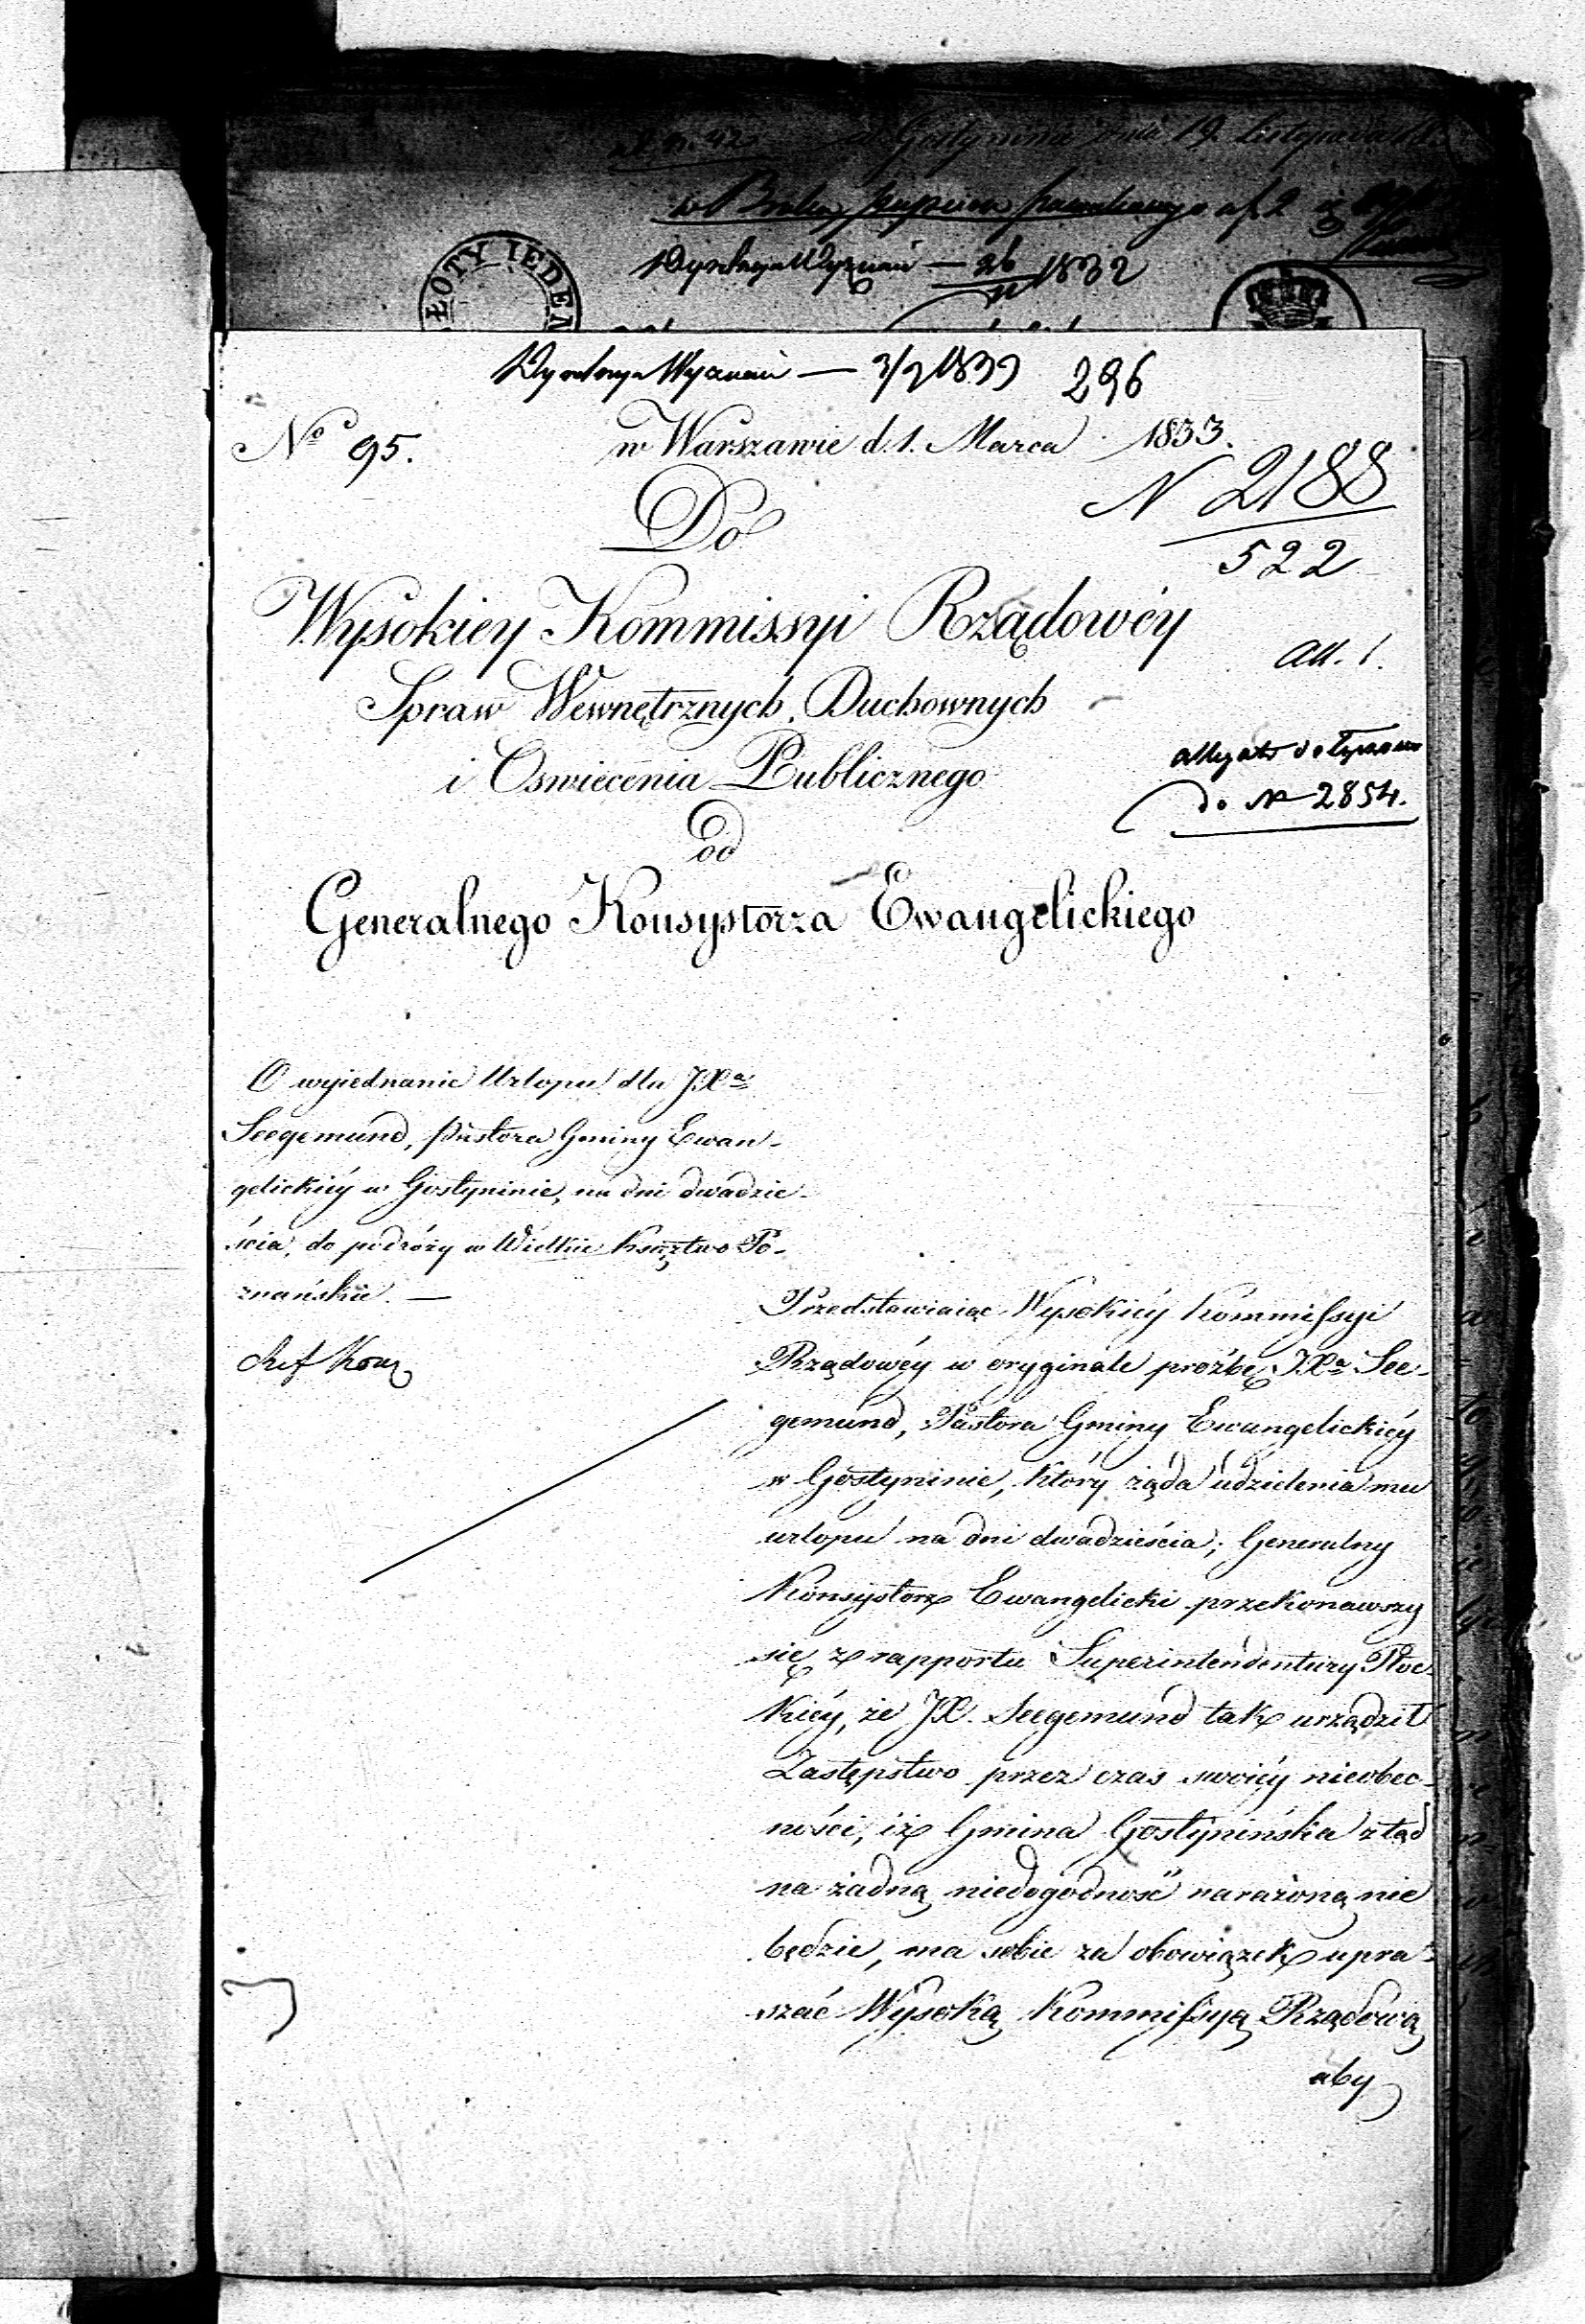 w Gostyninie dnia 19. Listopada
1832
ZŁOTY IEDEN
Dyrekcya Wyznań — 3/3 1833 296
No 95. w Warszawie d. 1. Marca 1833.
N 2188
522
Do
Wysokiey Kommissyi Rządowéy
All. 1.
Spraw Wewnętrznych, Duchownych
i Oswiecenia Publicznego
do N 2854.
od
Generalnego Konsystorza Ewangelickiego
O wyjednanie Urlopu dla JXa
Seegemund, Pastora Gminy Ewan-
gelickiéy w Gostyninie, na dni dwadzie-
ścia, do podróży w Wielkie Księztwo Po-
znańskie. —
Przedstawiaiąc Wysokiéy Kommissyi
Rządowéy w oryginale prożbę JXa See-
gemund, Pastora Gminy Ewangelickiéy
w Gostyninie, który żąda udzielenia mu
urlopu na dni dwadzieścia; Generalny
Konsystorz Ewangelicki przekonawszy
się z rapportu Superintendentury Płoc-
kiéy, że JX. Seegemund tak urządził
Zastępstwo przez czas swoiéy nieobec-
ności, iż Gmina Gostynińska ztąd
na żadną niedogodność narażoną nie
będzie, ma sobie za obowiązek upra-
szać Wysoką Kommissyą Rządową
aby